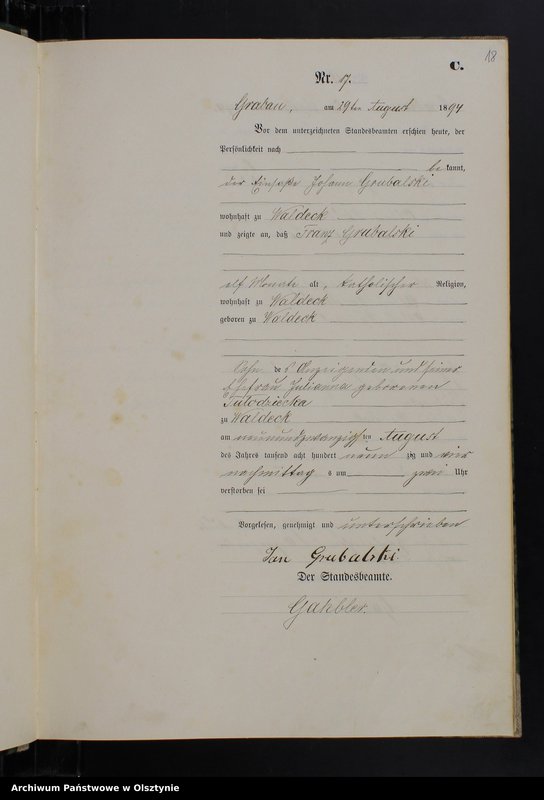 18
C.
Nr. 17.
Grabau, am 29ten August 1894
Vor dem unterzeichneten Standesbeamten erschien heute, der
Persönlichkeit nach
be kannt,
der Einsaße Johann Grubalski
wohnhaft zu Waldeck
und zeigte an, daß Franz Grubalski
elf Monate alt, katholischer Religion,
wohnhaft zu Waldeck
geboren zu Waldeck
Sohn des Anzeigenden und seiner
Ehefrau Julianna geborenen
Tulodziecka
zu Waldeck
am neunundzwanzigsten August
des Jahres tausend acht hundert neun zig und vier
nachmittags um zwei Uhr
verstorben sei
Vorgelesen, genehmigt und unterschrieben
Jan Grubalski
Der Standesbeamte.
Archiwum Państwowe w Olsztynie